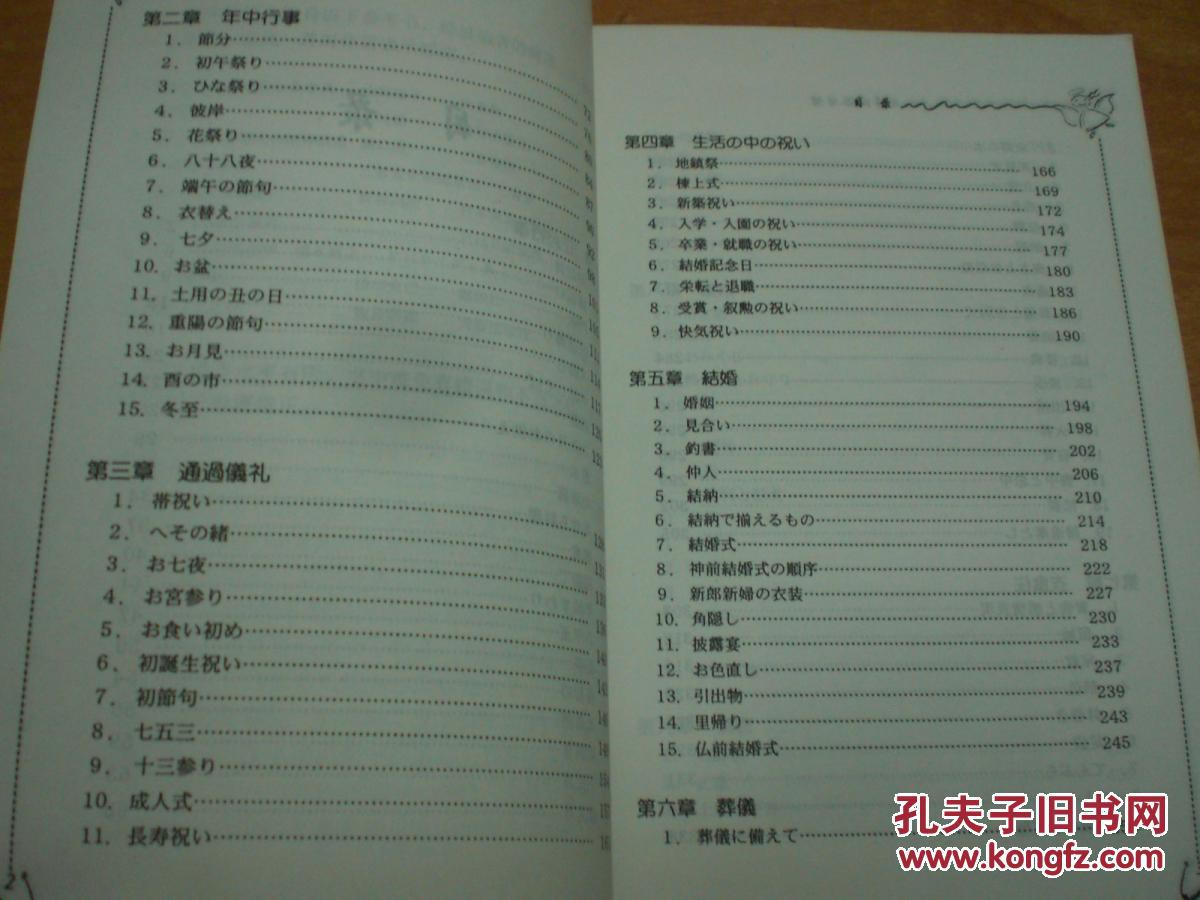 第二章 年中行事
1. 節分
2. 初午祭り
3. ひな祭り
4. 彼岸
5. 花祭り
6. 八十八夜
7. 端午の節句
8. 衣替え
9. 七夕
10. お盆
11. 土用の丑の日
12. 重陽の節句
13. お月見
14. 酉の市
15. 冬至
第三章 通過儀礼
1. 帯祝い
2. へその緒
3. お七夜
4. お宮参り
5. お食い初め
6. 初誕生祝い
7. 初節句
8. 七五三
9. 十三参り
10. 成人式
11. 長寿祝い
2
目录
第四章 生活の中の祝い
1. 地鎮祭 166
2. 棟上式 169
3. 新築祝い 172
4. 入学・入園の祝い 174
5. 卒業・就職の祝い 177
6. 結婚記念日 180
7. 栄転と退職 183
8. 受賞・叙勲の祝い 186
9. 快気祝い 190
第五章 結婚
1. 婚姻 194
2. 見合い 198
3. 釣書 202
4. 仲人 206
5. 結納 210
6. 結納で揃えるもの 214
7. 結婚式 218
8. 神前結婚式の順序 222
9. 新郎新婦の衣装 227
10. 角隠し 230
11. 披露宴 233
12. お色直し 237
13. 引出物 239
14. 里帰り 243
15. 仏前結婚式 245
第六章 葬儀
1. 葬儀に備えて
孔夫子旧书网
www.kongfz.com